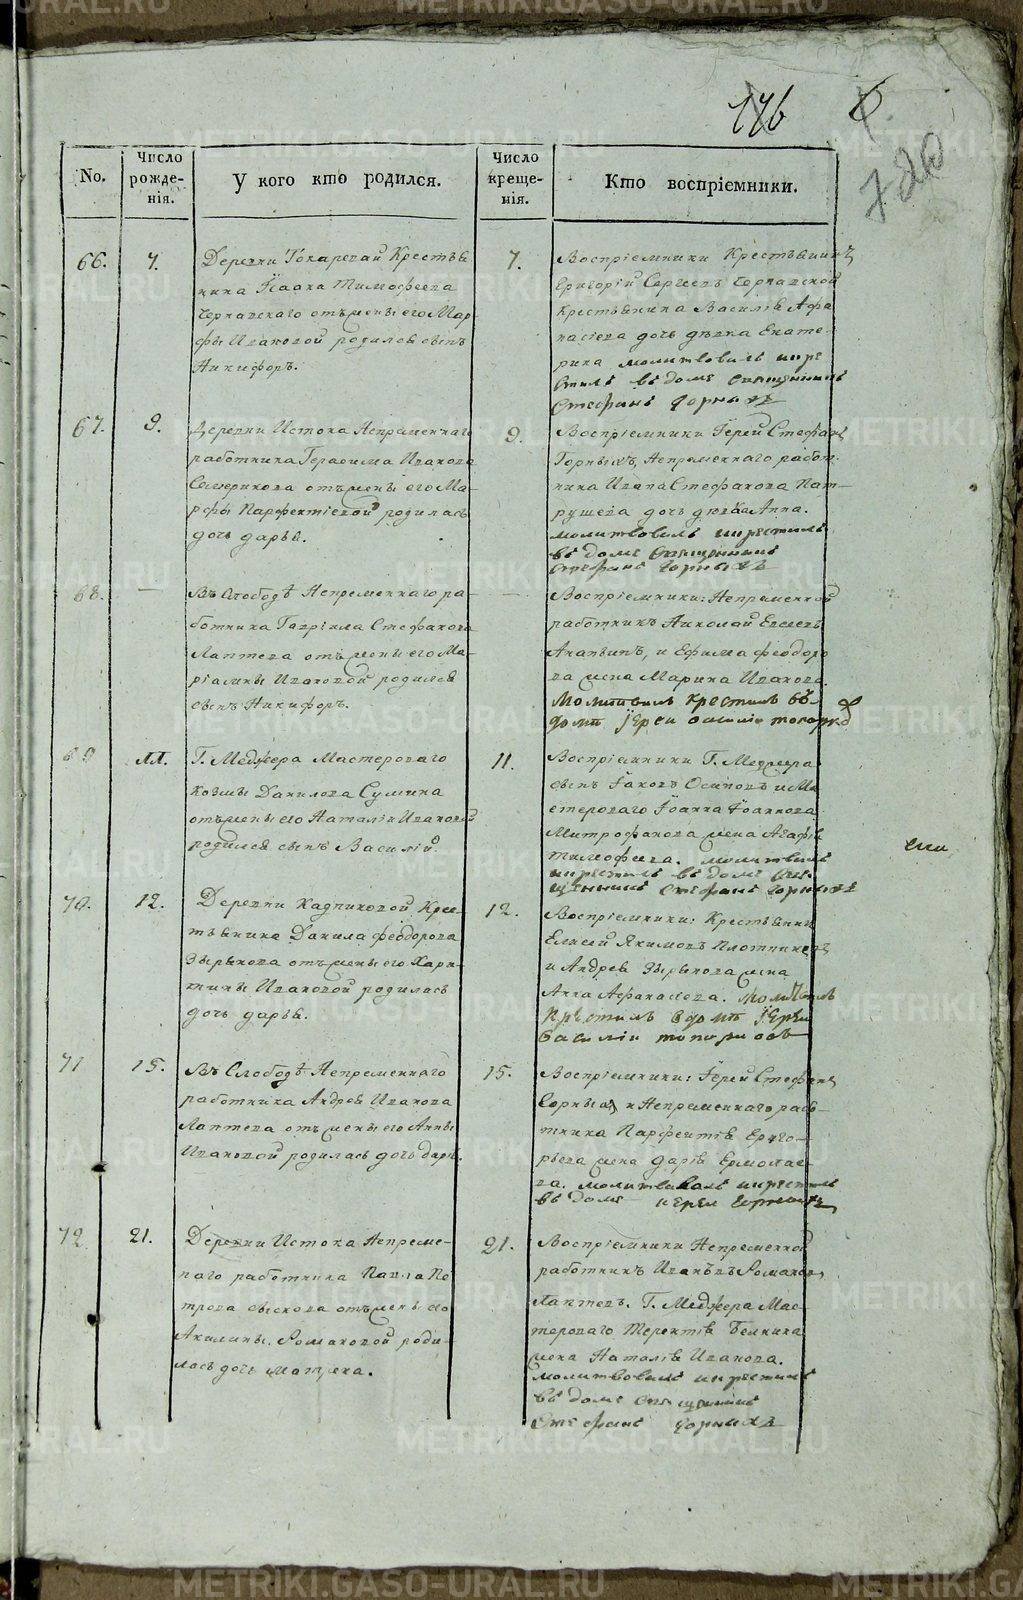 176
720
No.
Число рожде-нія.
У кого кто родился.
Число креще-нія.
Кто воспріемники.
66.
7.
Деревни Токаревай Крестья
нина Ісаака Тимофеева
Чернавскаго отъ жены его Мар
фы Ивановой родился сынъ
Никифоръ.
7.
Воспріемники Крестьянинъ
Григорій Сергеевъ Чернавской
крестьянина Василія Афа
насіева дочь дѣвка Екате-
рина молитвовалъ и кре
стилъ въ доме священникъ
Стефанъ Горныхъ
67.
9.
Деревни Истока Непременнаго
работника Герасима Иванова
отъ жены его Ма-
рфы Парфентіевой родилась
дочь дарья.
9.
Воспріемники Іерей Стефанъ
Горныхъ, Непременнаго работ-
ника Ивана Стефанова Пат-
рушева дочь дѣвка Анна.
молитвовалъ и крестилъ
въ доме священникъ
Стефанъ Горныхъ
68.
—
Въ Слободѣ Непременнаго ра-
ботника Гавріила Стефанова
Лаптева отъ жены его Ма-
ріамны Ивановой родился
сынъ Никифоръ.
—
Воспріемники: Непременной
работникъ Николай Евсеевъ
Ананьинъ, и Ефима Феодоро
ва жена Марина Иванова.
Молитвилъ крестилъ въ
домѣ Іерей Василіи Топорковъ
69
11.
Г. Меджера Мастероваго
Козмы Данилова Сумина
отъ жены его Наталіи Ивановой
родился сынъ Василій.
11.
Воспріемники Г. Меджера
сынъ Іаковъ Осиповъ и Ма
стероваго Іоанна Іоаннова
Митрофанова жена Агафія
тимофеева. молитвилъ
и крестилъ въ доме свя-
щенникъ Стефанъ Горныхъ
70.
12.
Деревни Кадниковой Крес-
тьянина Данила Феодорова
Зырянова отъ жены его Хари-
тины Ивановой родилась
дочь дарья.
12.
Воспріемники: Крестьянинъ
Елисей Якимовъ Плотниковъ
и Андрея Зырянова жена
Анна Афанасіева. молитвилъ
крестилъ в домѣ Іерей
Василіи топорковъ
71
15.
Въ Слободѣ Непременнаго
работника Андрея Иванова
Лаптева отъ жены его Анны
Ивановой родилась дочь дарья.
15.
Воспріемники: Іерей Стефанъ
Горныхъ и Непременнаго рабо-
тника Парфентія Григо-
рьева жена дарія Ермолае-
ва. молитвовалъ и крестилъ
въ доме иерей Горныхъ
72
21.
Деревни Истока Непреме-
наго работника Павла Пе
трова отъ жены его
Акилины Романовой роди-
лась дочь матрена.
21.
Воспріемники Непременной
работникъ Иванъ Романовъ
Лаптевъ. Г. Меджера Мас-
тероваго Терентія Белкина
жена Наталія Иванова.
молитвовалъ и крестилъ
въ доме священникъ
Стефанъ Горныхъ
METRIKI.GASO-URAL.RU